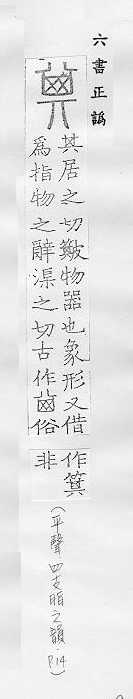 六書正譌
其居之切簸物器也象形又借
爲指物之辭渠之切古作𠀠俗
作箕
非
(平聲四支脂之韻.P.14)